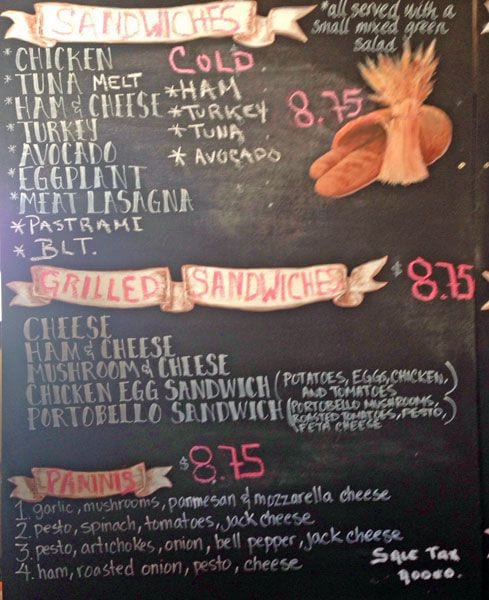 SANDWICHES
*all served with a
small mixed green
salad
*CHICKEN
*TUNA MELT
*HAM & CHEESE
*TURKEY
*AVOCADO
*EGGPLANT
*MEAT LASAGNA
*PASTRAMI
* BLT.
COLD
*HAM
*TURKEY
*TUNA
* AVOCADO
8.75
GRILLED SANDWICHES $8.75
CHEESE
HAM & CHEESE
MUSHROOM & CHEESE
CHICKEN EGG SANDWICH (POTATOES, EGGS, CHICKEN,
AND TOMATOES)
PORTOBELLO SANDWICH (PORTOBELLO MUSHROOMS,
ROASTED TOMATOES, PESTO,
FETA CHEESE)
PANINIS $8.75
1. garlic, mushrooms, parmesan & mozzarella cheese
2. pesto, spinach, tomatoes, jack cheese
3. pesto, artichokes, onion, bell pepper, jack cheese
4. ham, roasted onion, pesto, cheese
SALE TAX
ADDED.